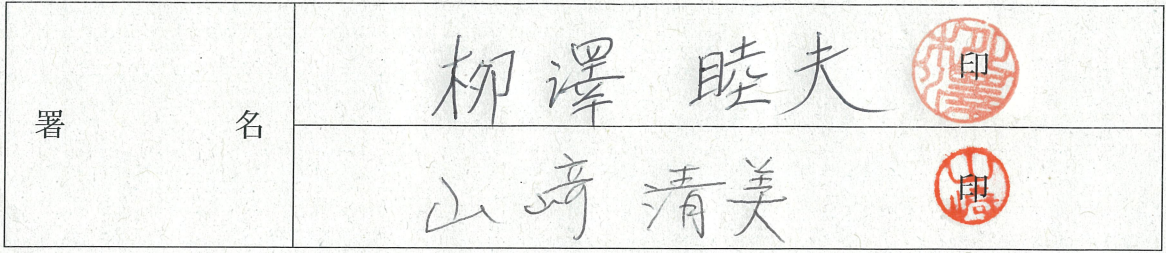 署名
柳澤 睦夫 印
山﨑 清美 印